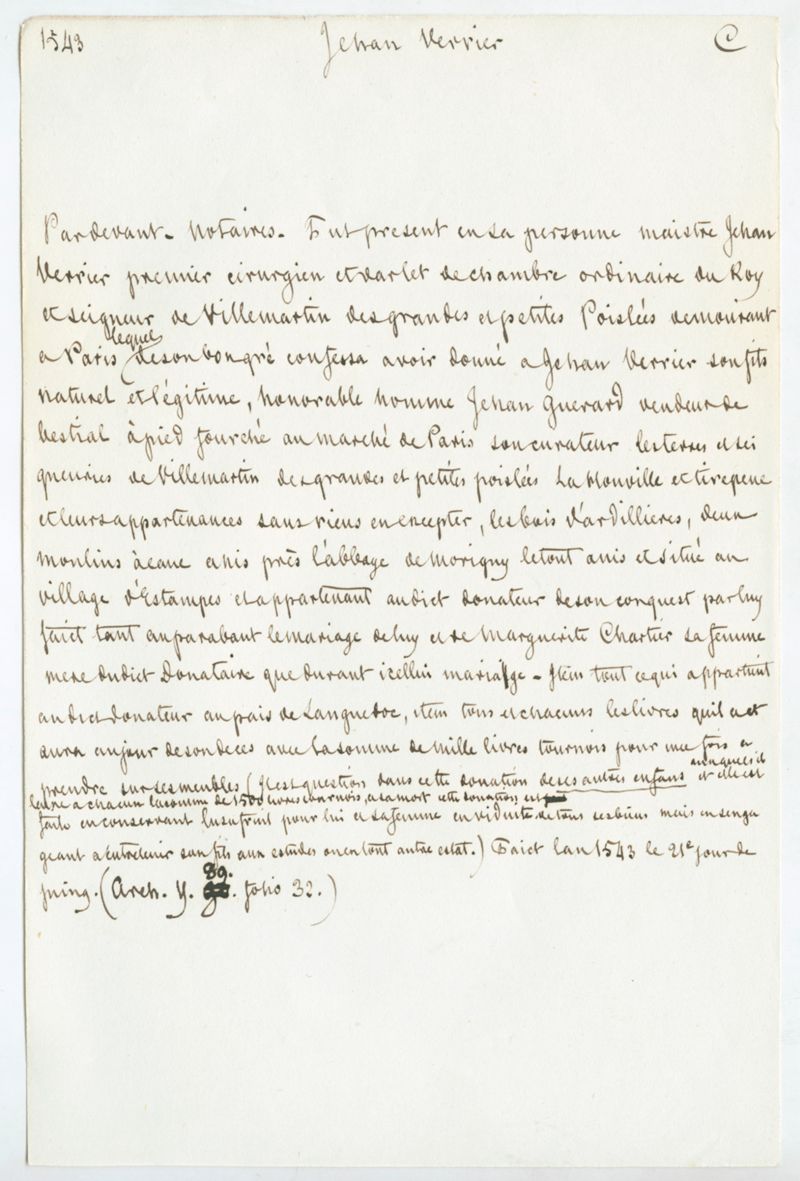 1543 Jehan Verrier C
Pardevant - Notaires - Fut present en sa personne maistre Jehan
Verrier premier cirurgien et varlet de chambre ordinaire du Roy
et seigneur de Villemartin des grandes et petites Poislées demourant
a Paris (lequel de son bon gré confessa avoir donné a Jehan Verrier son fils
naturel et légitime, honorable homme Jehan Guerard vendeur de
bestial à pied fourché au marché de Paris son curateur les terres et sei
gneuries de Villemartin des grandes et petites poislées La Monville et tirepene
et leurs appartenances sans riens en excepter, les bois d'ardillieres, deux
moulins à eaue anis près l'abbaye de Morigny le tout anis et situé au
village d'Estampes et appartenant audict donateur de son conquest par luy
faict tant auparabant le mariage de luy et de Marguerite Chartier sa femme
mere dudict Donataire que durant icelluy mariage - Item tout ce qui appartient
audict donateur au pais de Languedoc, item tous et chacuns les livres quil a et
aura au jour de son deces avec la somme de mille livres tournois pour une fois a
prendre sur ses meubles (Il est question dans cette donation de ses autres enfans auxquels il
laisse a chacun la somme de 1500 livres tournois, a sa mort cette donation est et elle est
faite en conservant lusufruit pour lui et sa femme en viduité de tous ses biens mais en senga
geant a entretenir son fils aux estudes ou en tout autre estat.) Faict lan 1543 le 21e jour de
juing. (Arch. Y. 89. folio 32.)